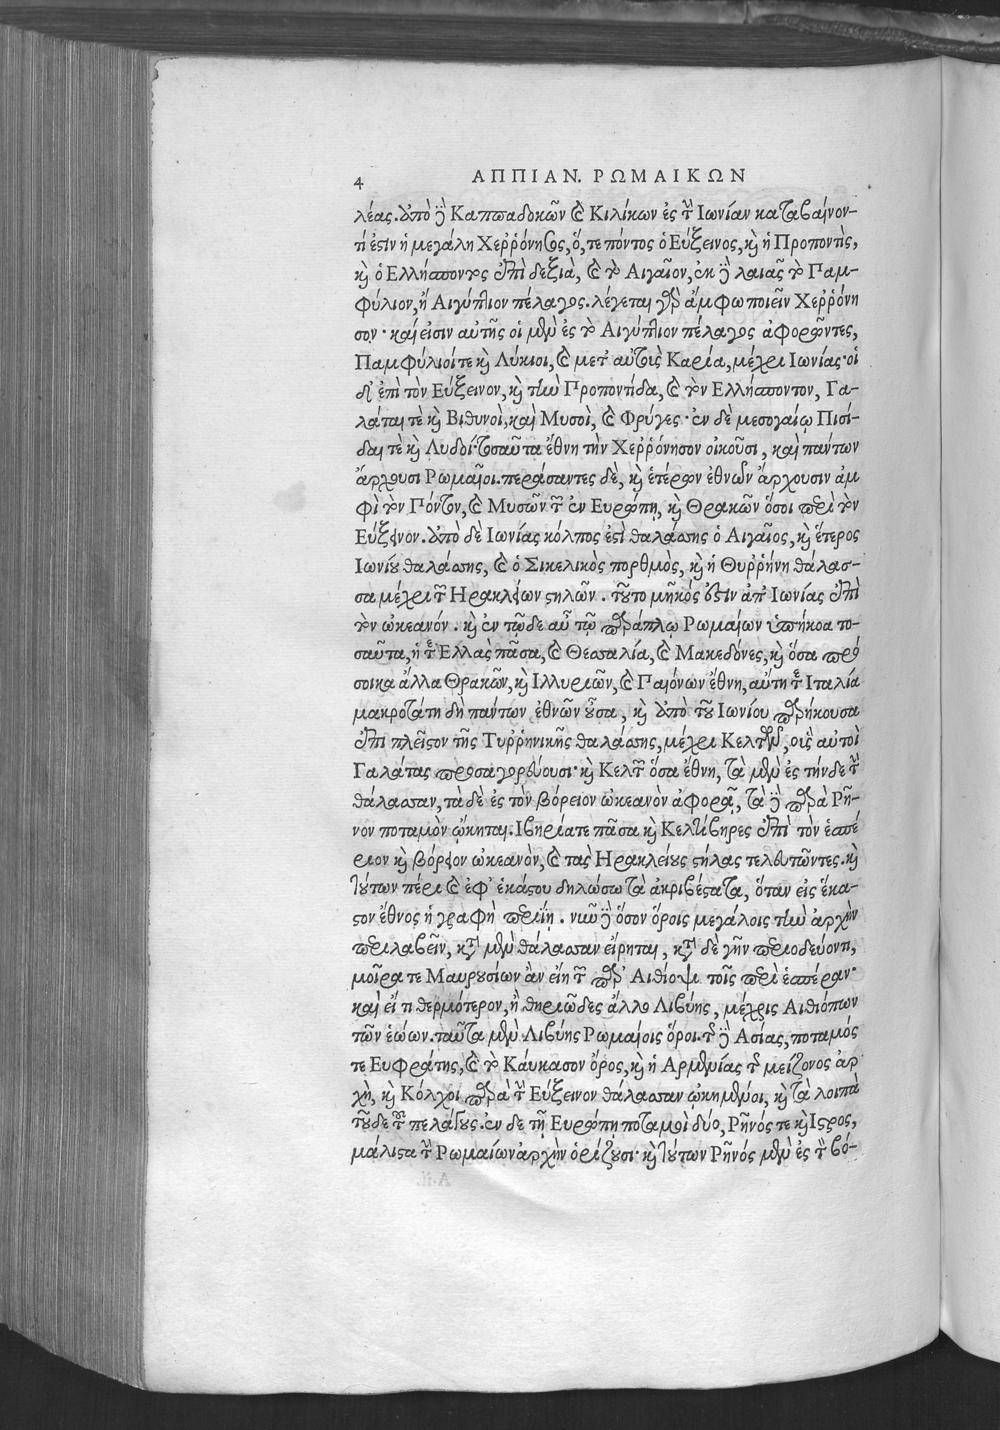 4 ΑΠΠΙΑΝ. ΡΩΜΑΙΚΩΝ
λέας. ἀπὸ δὲ Καππαδοκῶν καὶ Κιλίκων ἐς τὴν Ἰωνίαν καταβαίνον-
τί ἐστιν ἡ μεγάλη Χερῤῥόνησος, ὅ, τε πόντος ὁ Εὔξεινος, καὶ ἡ Προποντὶς,
καὶ ὁ Ἑλλήσποντος ἐπὶ δεξιὰ, καὶ τὸ Αἰγαῖον, ἐκ δὲ λαιᾶς τὸ Παμ-
φύλιον, ἢ Αἰγύπτιον πέλαγος. λέγεται γὰρ ἄμφω ποιεῖν Χερῤῥόνη
σον· καί εἰσιν αὐτῆς οἱ μὲν ἐς τὸ Αἰγύπτιον πέλαγος ἀφορῶντες,
Παμφύλιοί τε καὶ Λύκιοι, καὶ μετ' αὐτοὺς Καρία, μέχρι Ἰωνίας· οἱ
δ' ἐπὶ τὸν Εὔξεινον, καὶ τὴν Προποντίδα, καὶ τὸν Ἑλλήσποντον, Γα-
λάται τὲ καὶ Βιθυνοὶ, καὶ Μυσοὶ, καὶ Φρύγες· ἐν δὲ μεσογαίῳ Πισί-
δαι τὲ καὶ Λυδοί· τοσαῦτα ἔθνη τὴν Χερῤῥόνησον οἰκοῦσι, καὶ πάντων
ἄρχουσι Ρωμαῖοι. περάσαντες δὲ, καὶ ἑτέρων ἐθνῶν ἄρχουσιν ἀμ
φὶ τὸν Πόντον, καὶ Μυσῶν τῶν ἐν Εὐρώπῃ, καὶ Θρακῶν ὅσοι περὶ τὸν
Εὔξεινον. ἀπὸ δὲ Ἰωνίας κόλπος ἐστὶ θαλάσσης ὁ Αἰγαῖος, καὶ ἕτερος
Ἰωνίου θαλάσσης, καὶ ὁ Σικελικὸς πορθμὸς, καὶ ἡ Θυῤῥήνη θάλασ-
σα μέχρι τῶν Ἡρακλείων στηλῶν. τοῦτο μῆκός ἐστιν ἀπ' Ἰωνίας ἐπὶ
τὸν ὠκεανόν. καὶ ἐν τῷδε αὖ τῷ παράπλῳ Ρωμαίων ὑπήκοα το-
σαῦτα, ἥ τε Ἑλλὰς πᾶσα, καὶ Θεσσαλία, καὶ Μακεδόνες, καὶ ὅσα πρό
σοικα ἄλλα Θρακῶν, καὶ Ἰλλυριῶν, καὶ Παιόνων ἔθνη, αὐτή τε Ἰταλία
μακροτάτη δὴ πάντων ἐθνῶν οὖσα, καὶ ἀπὸ τοῦ Ἰονίου παρήκουσα
ἐπὶ πλεῖστον τῆς Τυῤῥηνικῆς θαλάσσης, μέχρι Κελτῶν, οὓς αὐτοὶ
Γαλάτας προσαγορεύουσι· καὶ Κελτῶν ὅσα ἔθνη, τὰ μὲν ἐς τήνδε τὴν
θάλασσαν, τὰ δὲ ἐς τὸν βόρειον ὠκεανὸν ἀφορᾷ, τὰ δὲ παρὰ Ρῆ-
νον ποταμὸν ᾤκηται. Ἰβηρία τε πᾶσα καὶ Κελτίβηρες ἐπὶ τὸν ἑσπέ
ριον καὶ βόρειον ὠκεανὸν, καὶ τὰς Ἡρακλείους στήλας τελευτῶντες. καὶ
τούτων πέρι καὶ ἐφ' ἑκάστου δηλώσω τὰ ἀκριβέστατα, ὅταν εἰς ἕκα-
στον ἔθνος ἡ γραφὴ περιΐῃ. νῦν δὲ ὅσον ὅροις μεγάλοις τὴν ἀρχὴν
περιλαβεῖν, κατὰ μὲν θάλασσαν εἴρηται, κατὰ δὲ γῆν περιοδεύοντι,
μοῖρά τε Μαυρουσίων ἂν εἴη τῶν παρ' Αἰθίοψι τοῖς περὶ ἑσπέραν·
καὶ εἴ τι θερμότερον, ἢ θηριῶδες ἄλλο Λιβύης, μέχρις Αἰθιόπων
τῶν ἑώων. ταῦτα μὲν Λιβύης Ρωμαίοις ὅροι. τῆς δὲ Ἀσίας, ποταμός
τε Εὐφράτης, καὶ τὸ Καύκασον ὄρος, καὶ ἡ Ἀρμενίας τῆς μείζονος ἀρ
χὴ, καὶ Κόλχοι παρὰ τὴν Εὔξεινον θάλασσαν ᾠκημένοι, καὶ τὰ λοιπὰ
τοῦδε τοῦ πελάγους. ἐν δὲ τῇ Εὐρώπῃ ποταμοὶ δύο, Ρῆνός τε καὶ Ἴστρος,
μάλιστα τὴν Ρωμαίων ἀρχὴν ὁρίζουσι· καὶ τούτων Ρῆνός μὲν ἐς τὸν βό-